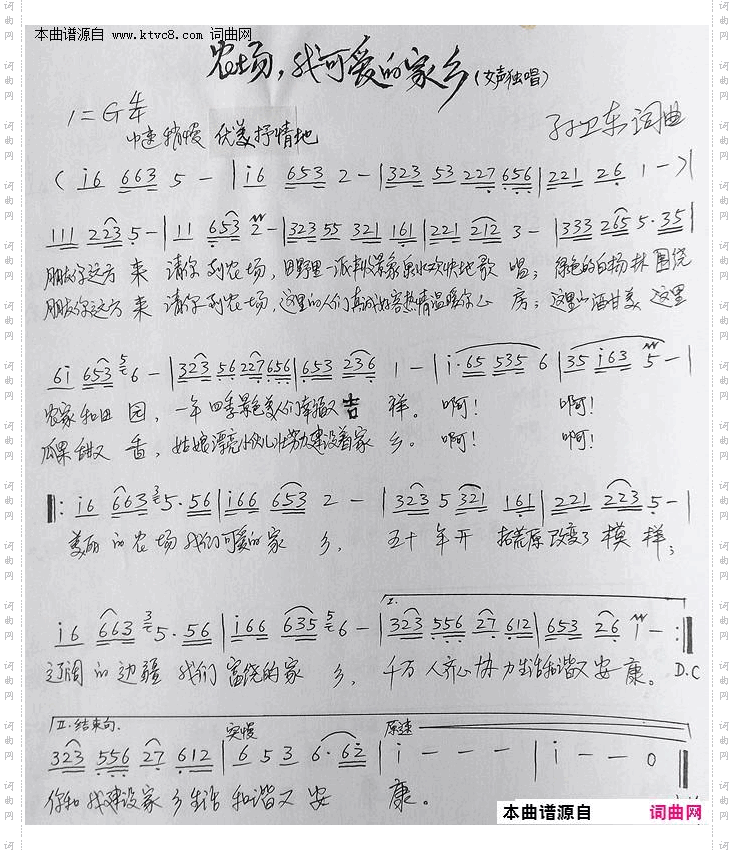 本曲谱源自 www.ktvc8.com 词曲网
农场，我可爱的家乡(女声独唱)
1=G 4/4
中速稍慢 优美抒情地
孙卫东词曲
( i6 663 5 - | i6 653 2 - | 323 53 227 656 | 221 26 1 - ) |
111 223 5 - | 11 653 2 - | 323 55 321 161 | 221 212 3 - | 333 265 5·35 |
朋友你远方来 请你到农场，田野里一派丰收景象泉水欢快地歌唱；绿色的白杨林围绕
朋友你远方来 请你到农场，这里的人们真诚好客热情温暖你心房；这里酒甘美 这里
6i 653 5 6 - | 323 56 227 656 | 653 236 1 - | i·65 535 6 | 35 i63 5 - |
农家和田园，一年四季景色美人们幸福又吉祥。啊！ 啊！
瓜果甜又香，姑娘漂亮小伙儿壮努力建设着家乡。啊！ 啊！
‖: i6 663 3 5·56 | i66 653 2 - | 323 5 321 161 | 221 223 5 - |
美丽的农场我们可爱的家乡，五十年开拓荒原改变了模样；
i6 663 3 5·56 | i66 635 5 6 - | I. 323 556 27 612 | 653 26 i - :‖
辽阔的边疆我们富饶的家乡，千万人齐心协力生活和谐又安康。D.C
II.结束句. 突慢 原速
323 556 27 612 | 6 5 3 6·62 | i - - - | i - - 0 ‖
你和我建设家乡生活和谐又安康。
本曲谱源自 词曲网
词曲网